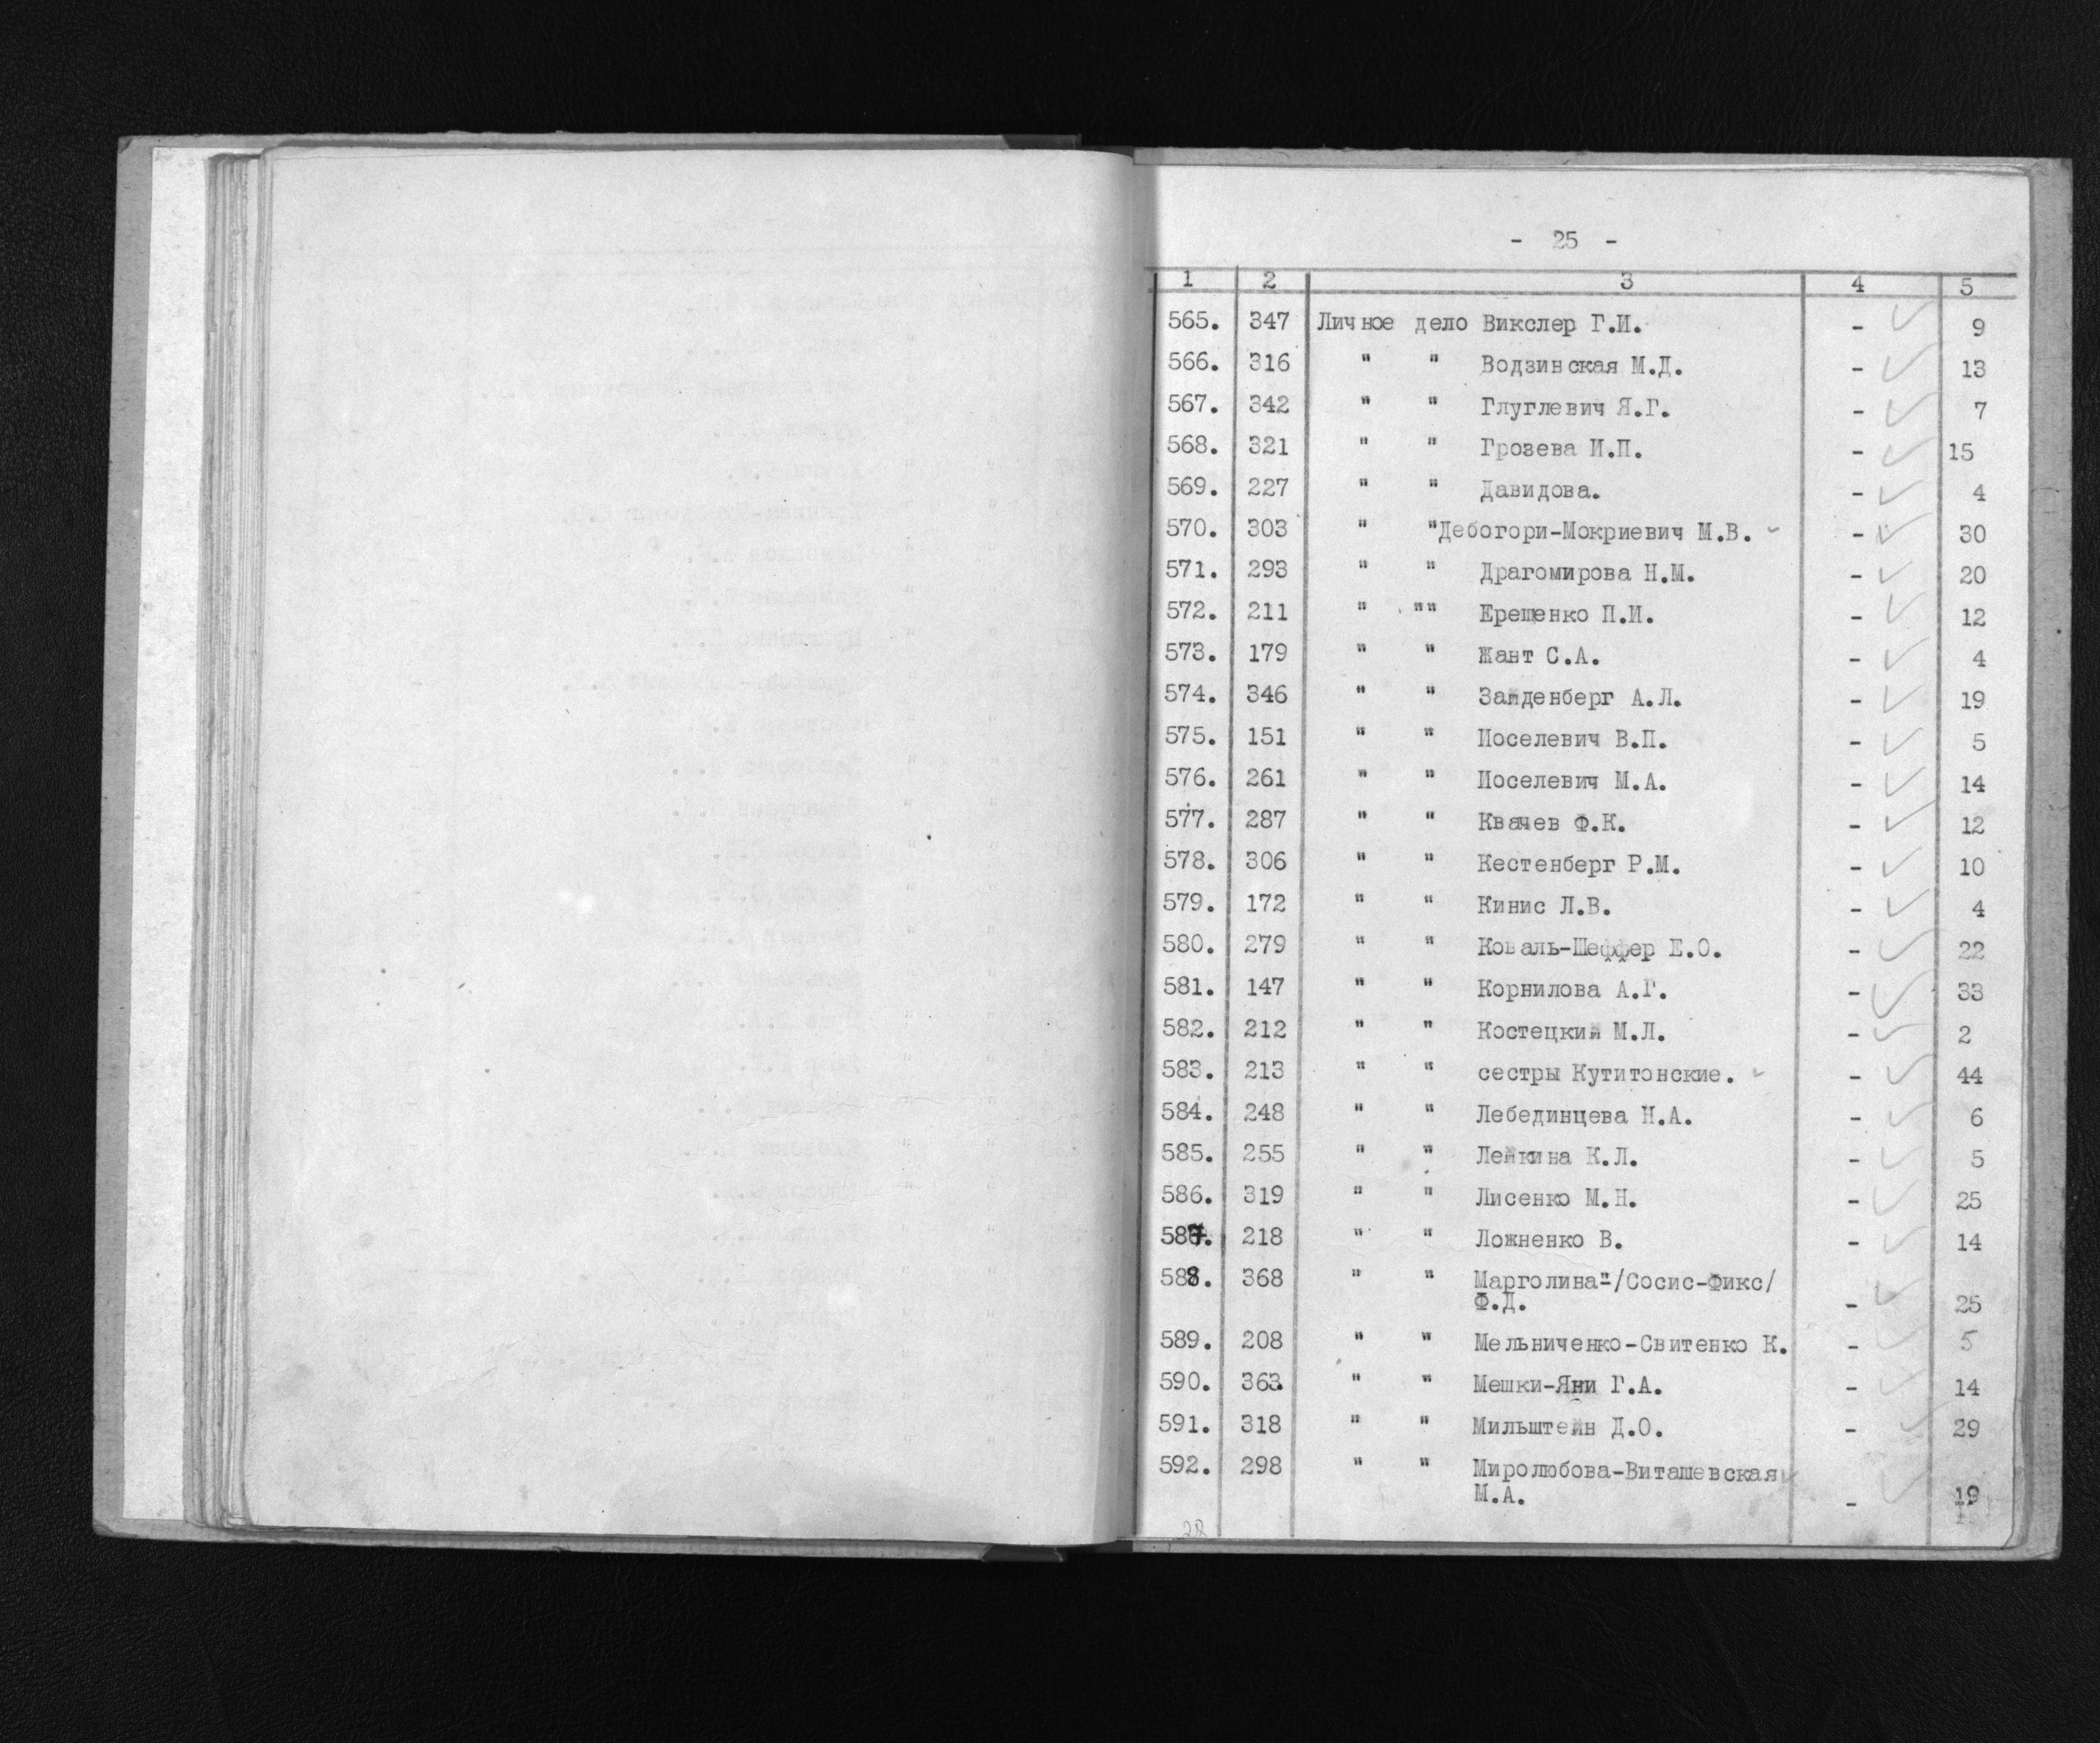 - 25 -
1 2 3 4 5
565. 347 Личное дело Викслер Г.И. - 9
566. 316 " " Водзинская М.Д. - 13
567. 342 " " Глуглевич Я.Г. - 7
568. 321 " " Грозева И.П. - 15
569. 227 " " Давидова. - 4
570. 303 " "Дебогори-Мокриевич М.В. - 30
571. 293 " " Драгомирова Н.М. - 20
572. 211 " "" Ерещенко П.И. - 12
573. 179 " " Жант С.А. - 4
574. 346 " " Зайденберг А.Л. - 19
575. 151 " " Иоселевич В.П. - 5
576. 261 " " Иоселевич М.А. - 14
577. 287 " " Квачев Ф.К. - 12
578. 306 " " Кестенберг Р.М. - 10
579. 172 " " Кинис Л.В. - 4
580. 279 " " Коваль-Шеффер Е.О. - 22
581. 147 " " Корнилова А.Г. - 33
582. 212 " " Костецкий М.Л. - 2
583. 213 " " сестры Кутитонские. - 44
584. 248 " " Лебединцева Н.А. - 6
585. 255 " " Лейкина К.Л. - 5
586. 319 " " Лисенко М.Н. - 25
587. 218 " " Ложненко В. - 14
588. 368 " " Марголина-/Сосис-Фикс/
Ф.Д. - 25
589. 208 " " Мельниченко-Свитенко К. - 5
590. 363 " " Мешки-Яни Г.А. - 14
591. 318 " " Мильштейн Д.О. - 29
592. 298 " " Миролюбова-Виташевская
М.А. - 19
28